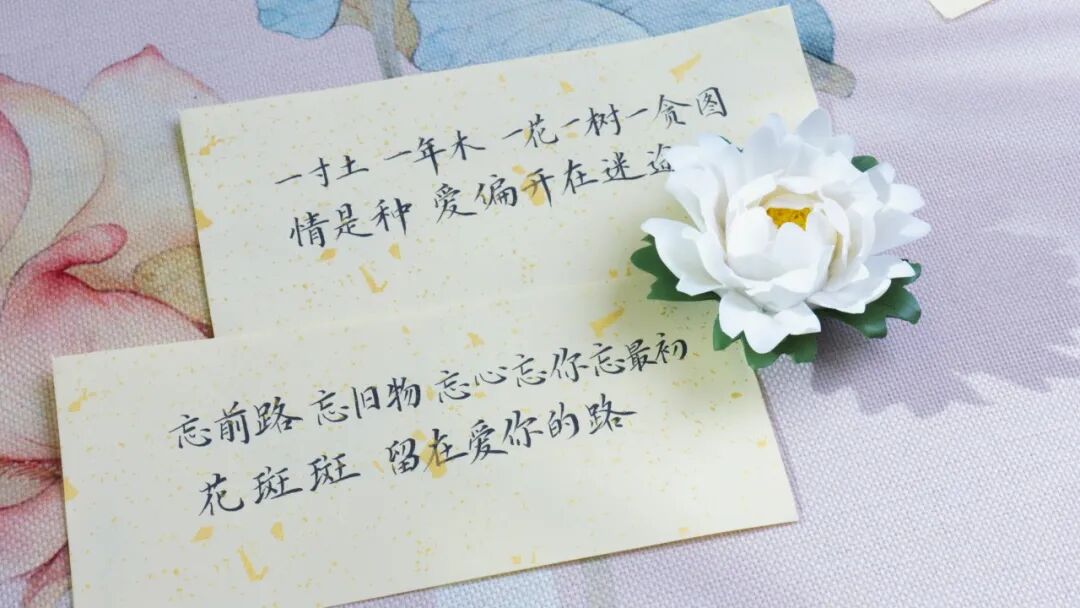 一寸土 一年木 一花一树一贪图
情是种 爱偏开在迷
忘前路 忘旧物 忘心忘你忘最初
花斑斑 留在爱你的路